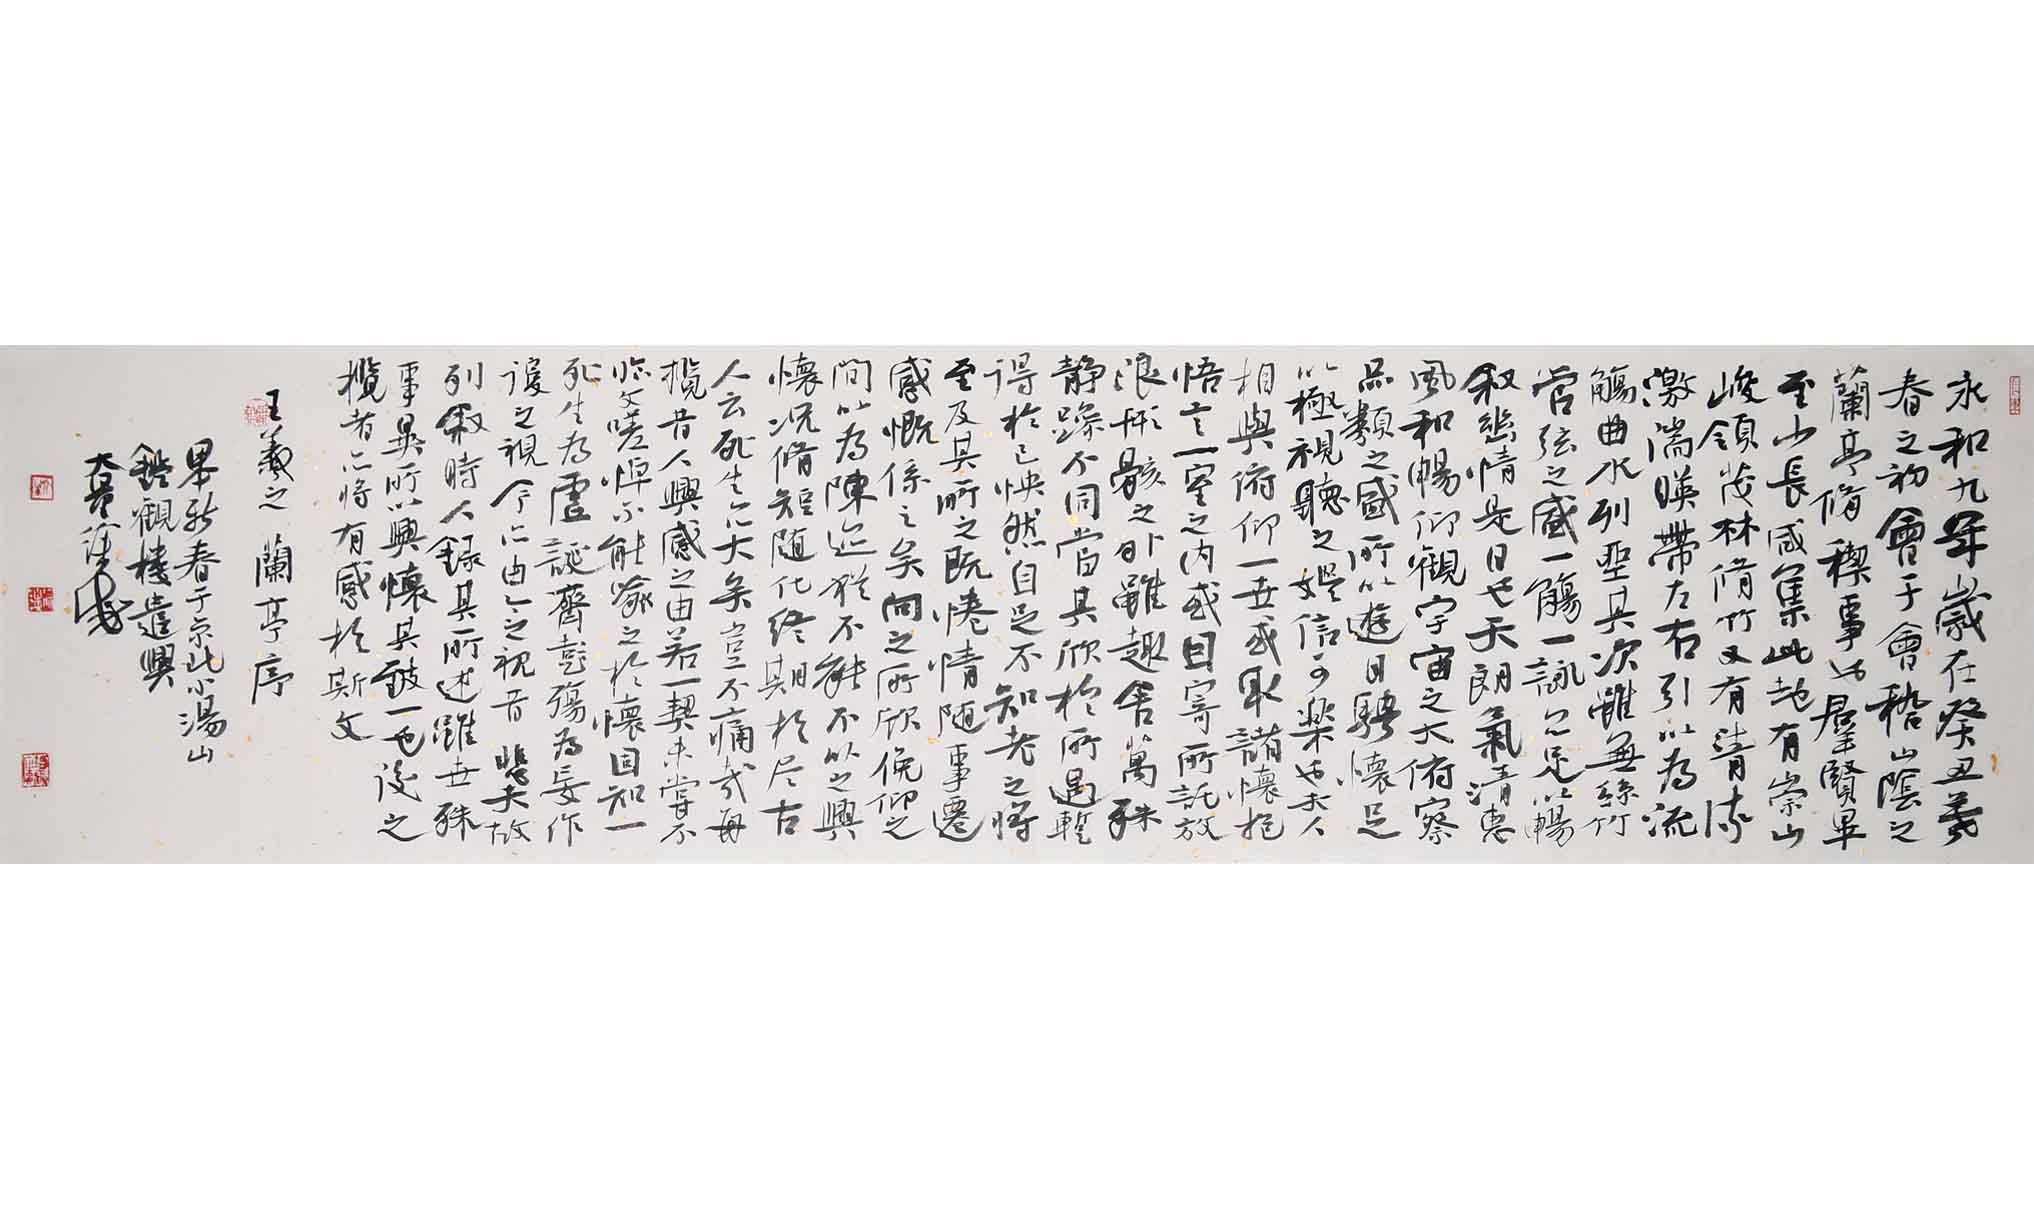 永和九年歲在癸丑暮
春之初會于會稽山陰之
蘭亭脩禊事也羣賢畢
至少長咸集此地有崇山
峻領茂林脩竹又有清流
激湍暎帶左右引以為流
觴曲水列坐其次雖無絲竹
管弦之盛一觴一詠亦足以暢
敘幽情是日也天朗氣清惠
風和暢仰觀宇宙之大俯察
品類之盛所以遊目騁懷足
以極視聽之娛信可樂也夫人
相與俯仰一世或取諸懷抱
悟言一室之內或因寄所託放
浪形骸之外雖趣舍萬殊
静躁不同當其欣於所遇蹔
得於己怏然自足不知老之將
至及其所之既惓情随事遷
感慨係之矣向之所欣俛仰之
間以為陳迹猶不能不以之興
懷況脩短随化終期於尽古
人云死生亦大矣豈不痛哉每
攬昔人興感之由若一契未嘗不
臨文嗟悼不能喻之於懷固知一
死生為虛誕齊彭殤為妄作
後之視今亦由今之視昔悲夫故
列敘時人録其所述雖世殊
事異所以興懷其致一也後之
攬者亦將有感於斯文
王羲之蘭亭序
新春于京北小湯山
觀樓遣興